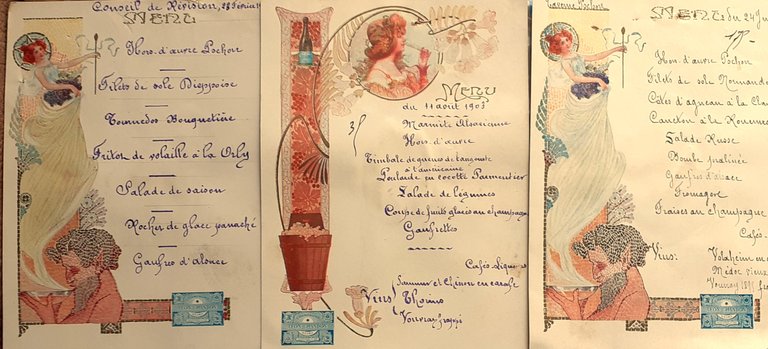 Conseil de Révision, 28 Février
MENU
Hors d'œuvre Pochon
Filets de sole Dieppoise
Tournedos Bouquetière
Friton de volaille à la Orly
Salade de saison
Rocher de glace panaché
Gaufres d'alsace
MENU
du 11 août 1903
Marmite Alsacienne
Hors d'œuvre
Timbale de queues de langouste
à l'américaine
Poularde en cocotte Parmentier
Salade de légumes
Coupe de fruits glacés au champagne
Gaufrettes
Cafés. Liqueurs
Saumur et Chinon en carafe
Vins Thorins
Vouvray frappé
Taverne Pochon
MENU du 24
Hors d'œuvre Pochon
Filets de sole Normande
Côtes d'agneau à la
Caneton à la Rouennaise
Salade Russe
Bombe pralinée
Gaufres d'alsace
Fromages
Fraises au champagne
Cafés
Vins: Volxheim en
Médoc vieux
Vouvray